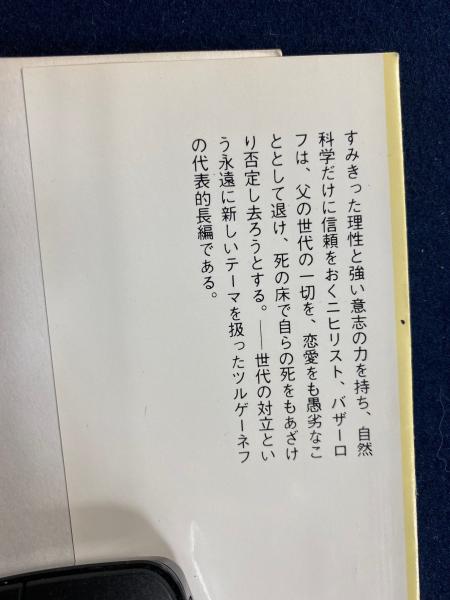 すみきった理性と強い意志の力を持ち、自然
科学だけに信頼をおくニヒリスト、バザーロ
フは、父の世代の一切を、恋愛をも愚劣なこ
ととして退け、死の床で自らの死をもあざけ
り否定し去ろうとする。――世代の対立とい
う永遠に新しいテーマを扱ったツルゲーネフ
の代表的長編である。